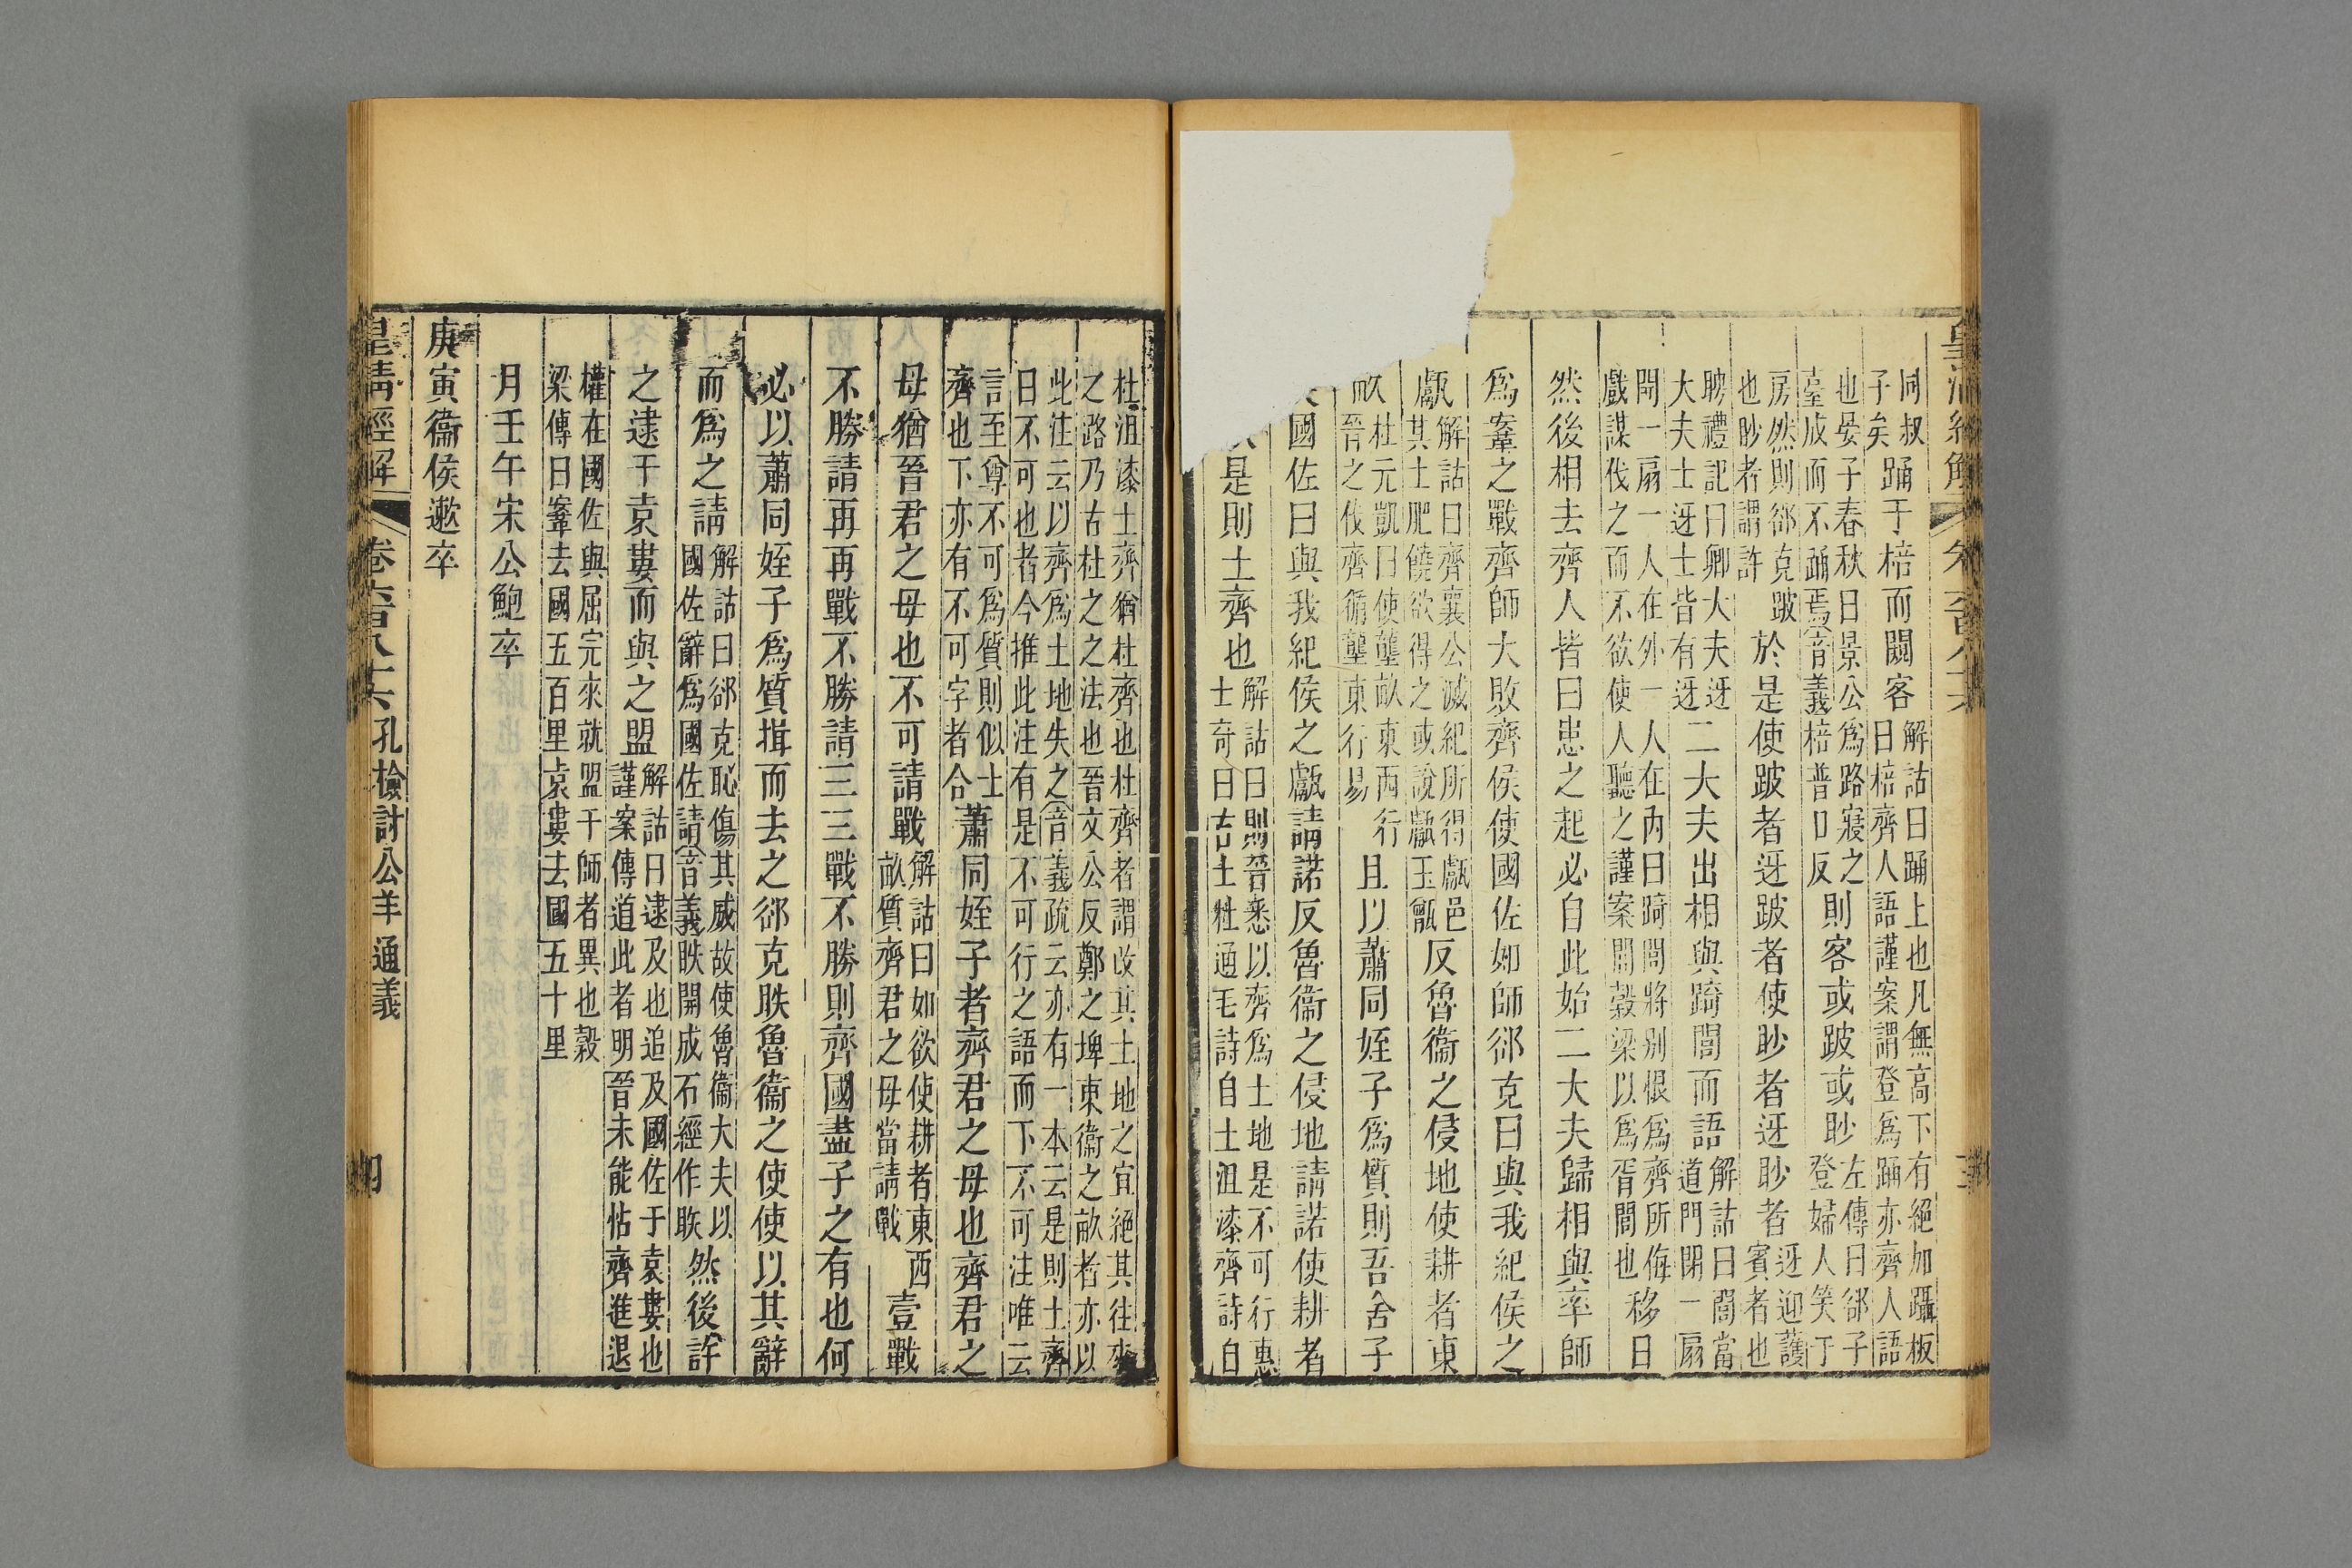 同叔
子矣
踊于棓而闚客
解詁曰踊上也凡無高下有絕加躡板
曰棓齊人語謹案謂登爲踊亦齊人語
也晏子春秋曰景公爲路寢之
臺成而不踊焉音義棓普口反
則客或跛或眇
左傳曰郤子
登婦人笑于
房然則郤克跛
也眇者謂許
於是使跛者迓跛者使眇者迓眇者
迓迎護
賓者也
聘禮記曰卿大夫迓
大夫士迓士皆有迓
二大夫出相與踦閭而語
解詁曰閭當
道門閉一扇
開一扇一人在外一人在內曰踦閭將別恨爲齊所侮
戲謀伐之而不欲使人聽之謹案閭穀梁以爲胥閭也
移日
然後相去齊人皆曰患之起必自此始二大夫歸相與率師
爲鞌之戰齊師大敗齊侯使國佐如師郤克曰與我紀侯之
甗
解詁曰齊襄公滅紀所得甗邑
其土肥饒欲得之或說甗玉甑
反魯衞之侵地使耕者東
畝
杜元凱曰使壟畝東西行
晉之伐齊循壟東行易
且以蕭同姪子爲質則吾舍子
國佐曰與我紀侯之甗請諾反魯衞之侵地請諾使耕者
是則土齊也
解詁曰則晉悉以齊爲土地是不可行惠
士奇曰古土牡通毛詩自土沮漆齊詩自
皇清經解
杜沮漆土齊猶杜齊也杜齊者謂改其土地之宜絕其往來
之路乃古杜之之法也晉文公反鄭之埤東衞之畝者亦以
此注云以齊爲土地失之音義疏云亦有一本云是則土齊
曰不可也者今推此注有是不可行之語而下不可注唯云
言至尊不可爲質則似土
齊也下亦有不可字者合
蕭同姪子者齊君之母也齊君之
母猶晉君之母也不可請戰
解詁曰如欲使耕者東西
畝質齊君之母當請戰
壹戰
不勝請再再戰不勝請三三戰不勝則齊國盡子之有也何
必以蕭同姪子爲質揖而去之郤克眣魯衞之使使以其辭
而爲之請
解詁曰郤克恥傷其威故使魯衞大夫以
國佐辭爲國佐請音義眣開成石經作䀢
然後許
之逮于袁婁而與之盟
解詁曰逮及也追及國佐于袁婁也
謹案傳道此者明晉未能怗齊進退
權在國佐與屈完來就盟于師者異也穀
梁傳曰鞌去國五百里袁婁去國五十里
月壬午宋公鮑卒
庚寅衞侯遬卒
皇清經解
卷六百八十六孔檢討公羊通義
四